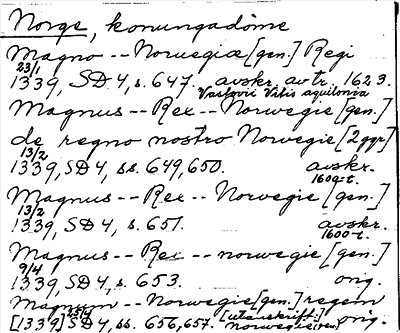 Norge, konungadöme
Magno -- Norwegiæ [gen.] Regi
23/1
1339, SD 4, s. 647. avskr. av tr. 1623.
Vastovii Vitis aquilonia
Magnus -- Rex -- Norwegie [gen.]
de regno nostro Norwegie [2 ggr]
13/2
1339, SD 4, ss. 649, 650. avskr.
1600-t.
Magnus -- Rex -- Norwegie [gen.]
13/2
1339, SD 4, s. 651. avskr.
1600-t.
Magnus -- Rex -- norwegie [gen.]
9/4
1339, SD 4, s. 653. orig.
Magnum -- Norwegie [gen.] regem
[1339] SD 4, ss. 656, 657. [utanskrift:] norwegie [gen.] orig.